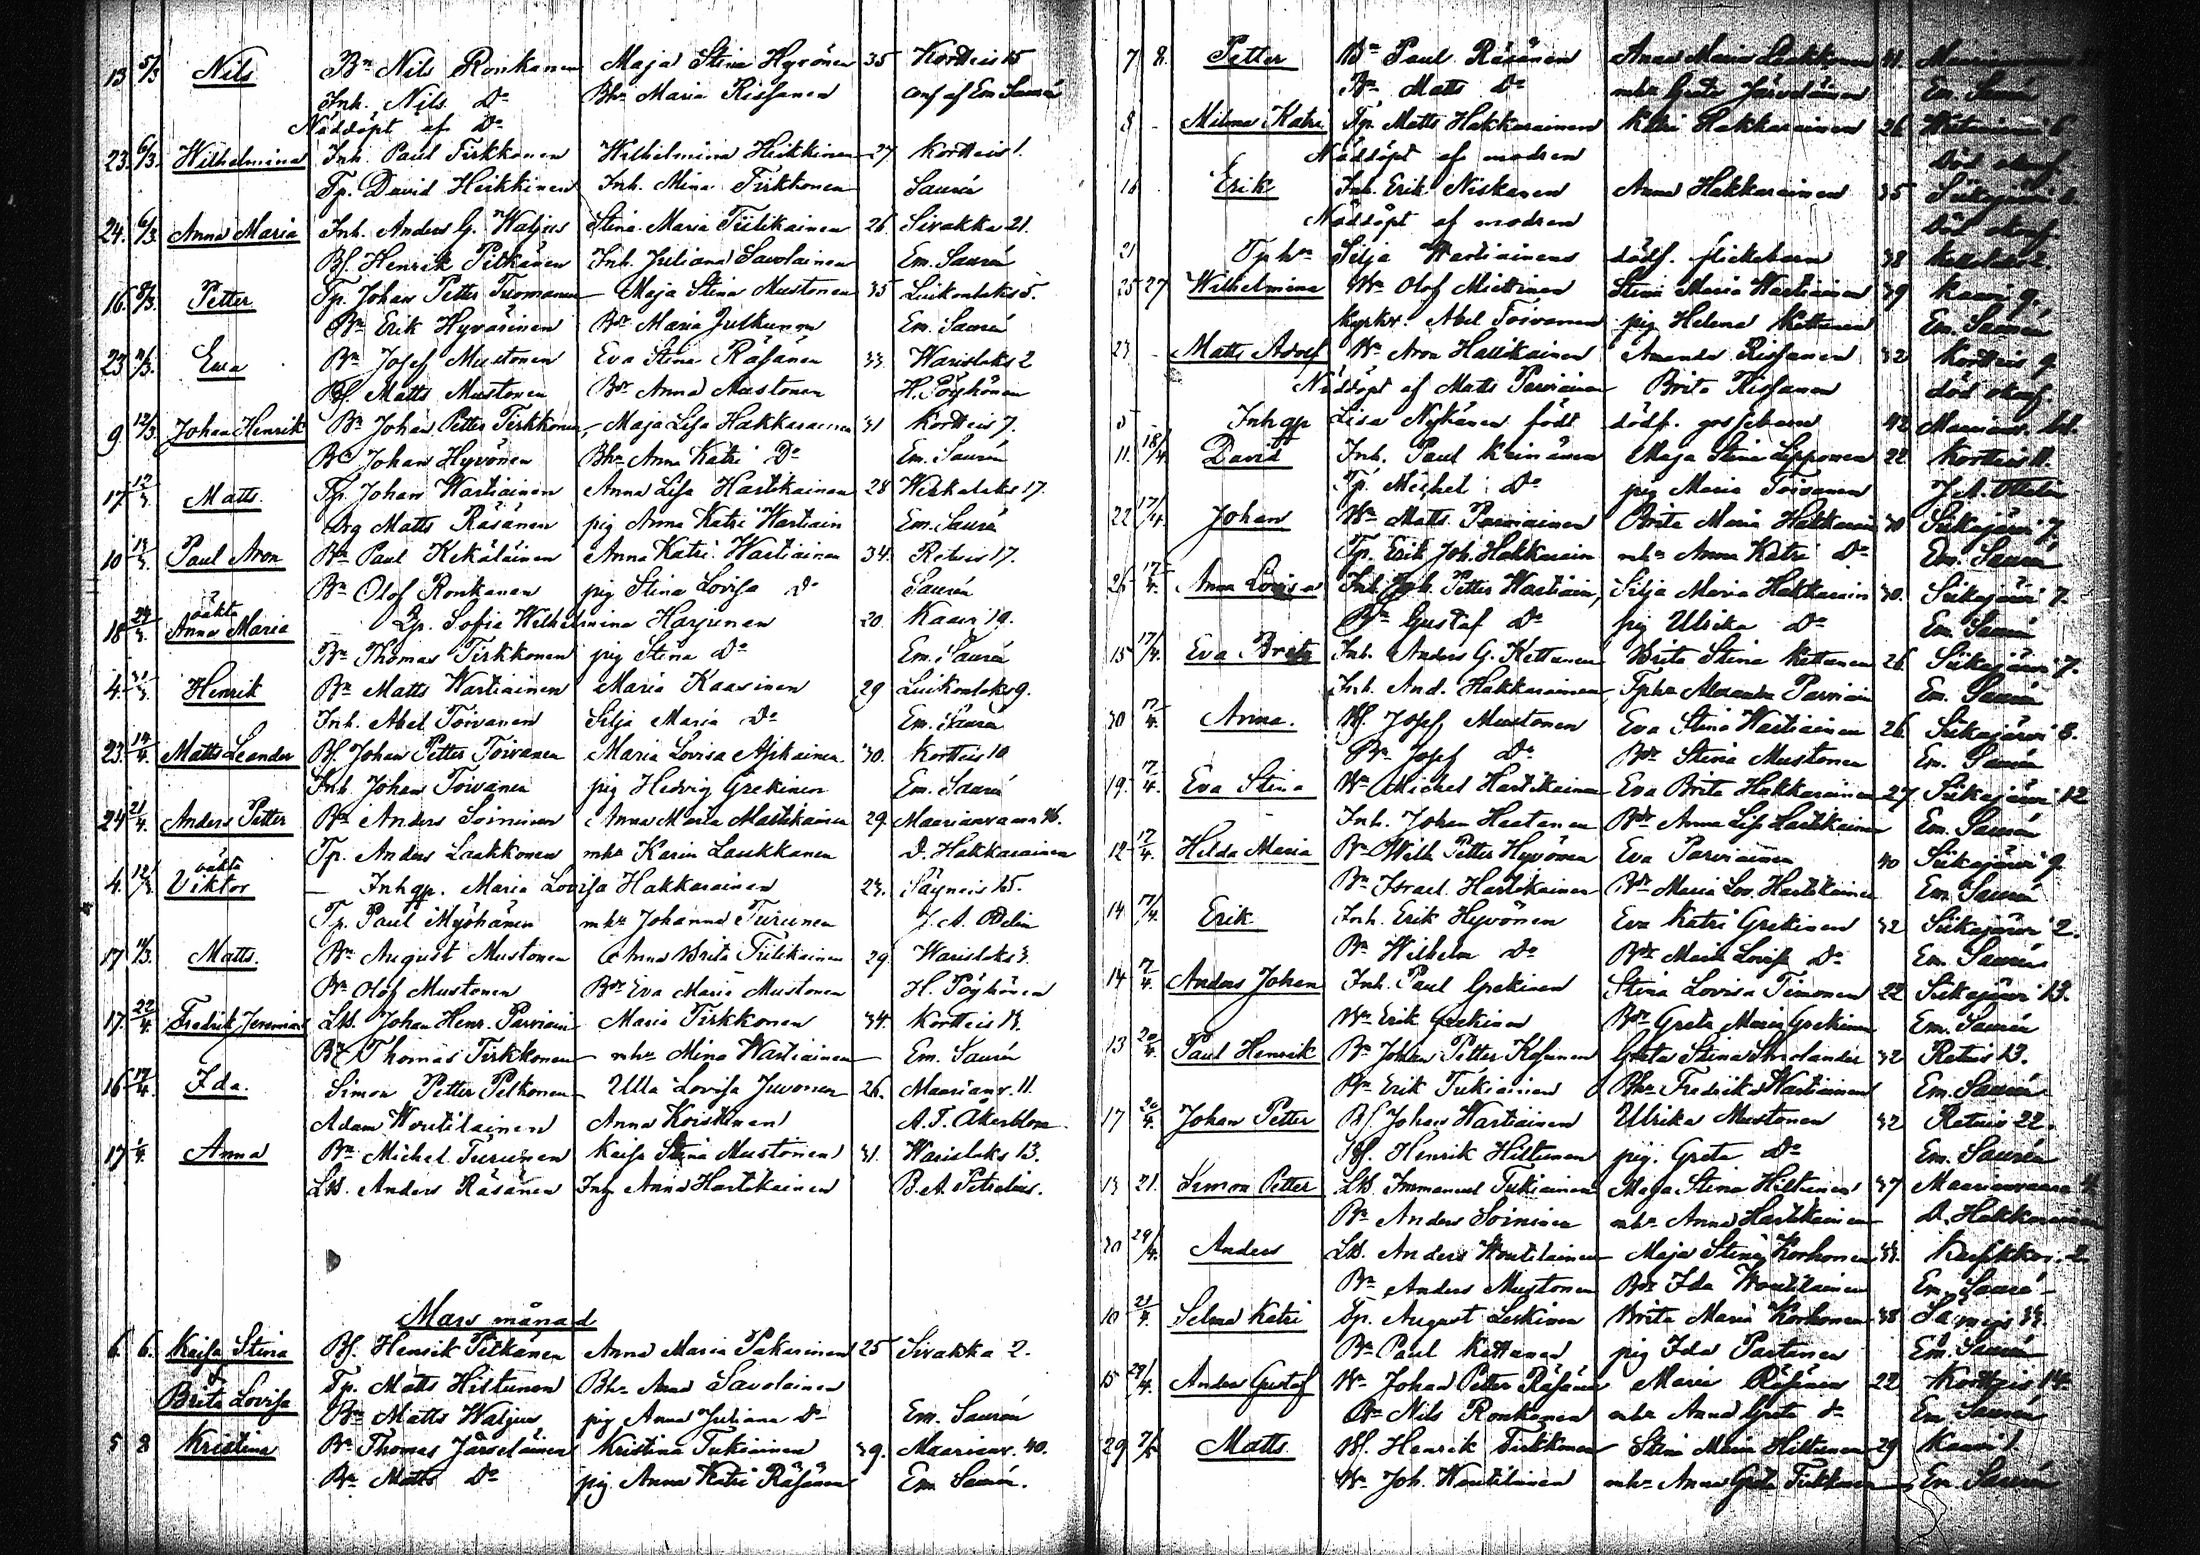 13 5/3 Nils Bn Nils Ronkanen Maja Stina Hyvönen 35 Kortteis 15
Inh. Nils Do Bhr Maria Rissanen conf af Em Saurén
Nöddöpt af Do
23. 6/3. Wilhelmina Inh. Paul Tirkkonen Wilhelmina Heikkinen 27 Kortteis 1.
Tp. David Heikkinen Inh. Mina Tirkkonen Saurén
24. 6/3. Anna Maria Inh. Anders G. Waljus Stina Maria Tiilikainen 26. Sivakka 21.
Bf. Henrik Pitkänen Inh. Juliana Savolainen Em. Saurén
16. 8/3. Petter Tp. Johan Petter Tuomanen Maja Stina Mustonen 35 Luikonlaks 5.
Bn Erik Hyvärinen Bdr Maria Julkunen Em. Saurén
23 11/3. Eva Bn Josef Mustonen Eva Stina Räsänen 33. Warislaks 2
Bf. Matts Mustonen Bdr Anna Mustonen H. Pöyhönen
9. 12/3. Johan Henrik Bn Johan Petter Tirkkonen, Maja Lisa Hakkarainen 31 Kortteis 7.
Bn Johan Hyvönen Bhr Anna Katri Do Em. Saurén
17 12/3 Matts. Tp. Johan Wartiainen Anna Lisa Hartikainen 28 17.
Drg Matts Räsänen pig Anna Katri Wartiain Em. Saurén
10 Paul Aron Bn Paul Kekäläinen Anna Katri Wartiainen 34. Retuis 17.
Bn Olof Ronkanen pig Stina Lovisa Do Saurén
18 oäkta Anna Maria Qp. Sofia Wilhelmina Harjunen 20. Kaavi 19.
Bn Thomas Tirkkonen pig Stina Do Em. Saurén
4. Henrik Bn Matts Wartiainen Maria Kaasinen 29 Luikonlaks 9.
Inh. Abel Toivanen Silja Maria Do Em. Saurén
23. 14/4. Matts Leander Bf. Johan Petter Toivanen Maria Lovisa 30. Kortteis 10
Inh. Johan Toivanen pig Hedvig Grekinen Em. Saurén
24 21/4. Anders Petter Bn Anders Soininen Anna Maria Martikainen 29. Maarianvaara 46.
Tp. Anders Laakkonen mhr Karin Laukkanen D. Hakkarainen
4. 12/3 oäkta Viktor Inhqp. Maria Lovisa Hakkarainen 23. Säyneis 25.
Tp. Paul Myöhänen mhr Johanna Turunen J. A. Odelin
17 Matts. Bn August Mustonen Anna Brita Tiilikainen 29. Warislaks 3.
Bn Olof Mustonen Bdr Eva Maria Mustonen H. Pöyhönen
17. 22/4. Fredrik Jeremias Lb. Johan Henr. Parviain Maria Tirkkonen 34. Kortteis
Bn Thomas Tirkkonen mhr Mina Wartiainen Em. Saurén
16 17/4. Ida. Simon Petter Pelkonen Ulla Lovisa Juvonen 26. Maarianv. 11.
Adam Woutilainen Anna Koistinen A. F. Åkerblom
17 Anna Bn Michel Turunen Kaisa Stina Mustonen 31. Warislaks 13.
Lb. Anders Räsänen Inh Anna Hartikainen B. A. Petrelius.
Mars månad
6. 6. Kaisa Stina Bf. Henrik Pitkänen Anna Maria Pakarinen 25 Sivakka 2.
& Tp. Matts Hiltunen Bhr Anna Savolainen
Brita Lovisa Bn Matts Waljus pig Anna Juliana Do Em. Saurén
5 8 Kristina Bn Thomas Järveläinen Kristina Tukiainen 39. Maarianv. 40.
Bn Matts Do pig Anna Katri Räsänen Em Saurén.
7 8. Petter Bn Paul Räsänen Anna Maria Laakkonen 41.
Bn Matts Do mhr Greta Järveläinen Em. Saurén
8 - Milma Katri Tp. Matts Hakkarainen Katri Hakkarainen 26
Nöddöpt af modren död
16 Erik Inh. Erik Niskanen Anna Hakkarainen 35 Siikajärvi
Nöddöpt af modren död
21 Tphr Silja Wartiainens dödf. flickebarn 38
25 27 Wilhelmina Wn Olof Miettinen Stina Maria Wartiainen 39 Kaavi 9.
Kyrkv. Abel Toivanen pig Helena Kettunen Em. Saurén
23 - Matts Adolf Wn Aron Hallikainen Amanda Rissanen 32 Kortteis 9
Nöddöpt af Matts Parviainen Brita Rissanen död
5 Inhqp Lisa Nykänen född dödf. gossebarn 42
11. 18/4 David Inh. Paul Keinänen Maja Stina Lipponen 22 Kortteis 11.
Tp. Michel Do pig Maria Toivanen J. A. Odelin
22 17/4. Johan Wn Matts Parviainen Brita Maria Hakkarain 30 Siikajärvi 7.
Tp. Erik Joh. Hakkarain mhr Anna Katri Do Em. Saurén
26 17/4. Anna Lovisa Inh. Joh. Petter Wartiain, Silja Maria Hakkarain 30. Siikajärvi 7.
Bn Gustaf Do pig Ulrika Do Em. Saurén
15 17/4. Eva Brita Inh. Anders G. Kettunen Brita Stina Kettunen 26 Siikajärvi 7.
Inh. And. Hakkarainen, Tphr Alexandra Parviain Em. Saurén
30 17/4. Anna. Bf. Josef Mustonen Eva Stina Wartiainen 26. Siikajärvi 8.
Bn Josef Do Bdr Stina Mustonen Em. Saurén
19. 17/4. Eva Stina Wn Michel Hartikainen Eva Brita Hakkarainen 27. Siikajärvi 12
Inh. Johan Haatanen Bdr Anna Lisa Hartikainen Em. Saurén
12 17/4. Hilda Maria Bn Wilh. Petter Hyvönen Eva Parviainen 40 Siikajärvi 9
Bn Israel Hartikainen Bdr Maria Lov. Hartikainen Em. Saurén
14 17/4. Erik Inh. Erik Hyvönen Eva Katri Grekinen 32 Siikajärvi 2.
Bn Wilhelm Do Bdr Maria Lovisa Do Em. Saurén
14 17/4. Anders Johan Inh. Paul Grekinen Stina Lovisa Timonen 22 Siikajärvi 13.
Wn Erik Grekinen Bdr Greta Maria Grekinen Em. Saurén
13 20/4. Paul Henrik Bn Johan Petter Kosunen Greta Stina 32 Retuis 13.
Bn Erik Tukiainen Bhr Fredrika Wartiainen Em. Saurén
17 20/4. Johan Petter Bf. Johan Wartiainen Ulrika Mustonen 32 Retuis 22.
Bf. Henrik Hiltunen pig. Greta Do Em. Saurén
13 21. Simon Petter Lb. Immanuel Tukiainen Maja Stina Hiltunen 37 Maarianvaara
Bn Anders Soininen mhr Anna Hartikainen D. Hakkarainen
30 29/4. Anders Lb. Anders Woutilainen Maja Stina Korhonen
Bn Anders Mustonen Bdr Ida Woutilainen Em. Saurén
10 21/4. Selma Katri Tp. August Leskinen Brita Maria Korhonen 38
Bn Paul Kettunen pig Ida Partanen Em. Saurén
15 29/4. Anders Gustaf Wn Johan Petter Räsänen Maria Räsänen 22 Kortteis 14.
Bn Nils Ronkanen mhr Anna Greta Do Em Saurén
29 7/5 Matts. Bf. Henrik Tirkkonen Stina Maria Hiltunen 29 Kaavi 1.
Wn Joh. Woutilainen mhr Anna Greta Tirkkonen Em Saurén